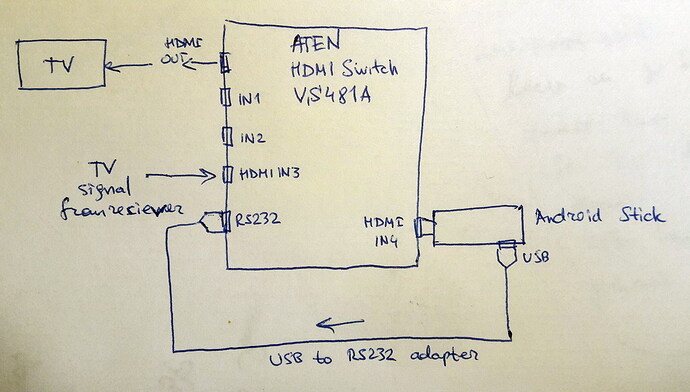 HDMI
OUT
TV
ATEN
HDMI Switch
VS481A
IN1
IN2
TV
signal
from resiewer
HDMI IN3
RS232
HDMI
IN4
Android Stick
USB
USB to RS232 adapter